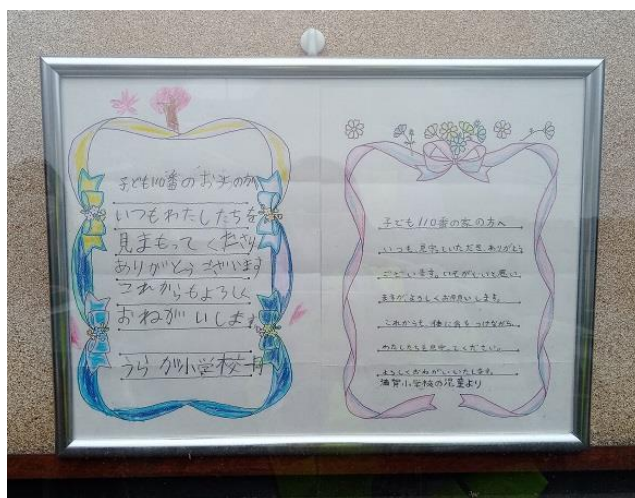 子ども110番のお家の方へ
いつもわたしたちを
見まもってくださり
ありがとうございます
これからもよろしく
おねがいします
うらが小学校
子ども110番の家の方へ
いつも見守っていただきありがとう
ございます。いそがしいと思い
ますが、よろしくお願いします。
これからも、体に気をつけながら、
わたしたちを見守ってください。
よろしくおねがいいたします。
浦賀小学校の児童より